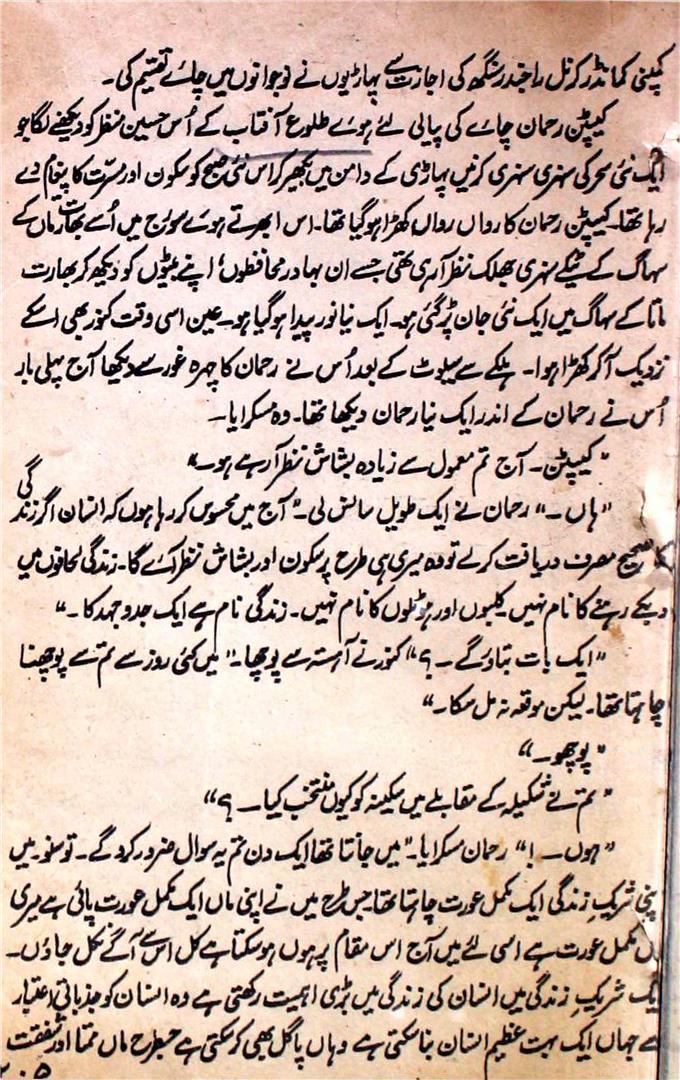 کمپنی کمانڈر کرنل راجندر سنگھ کی اجازت سے پہاڑیوں نے نوجوانوں میں چائے تقسیم کی۔
کیپٹن رحمان چائے کی پیالی لئے ہوئے طلوع آفتاب کے اُس حسین منظر کو دیکھنے لگا جو
ایک نئی سحر کی سنہری سنہری کرنیں پہاڑی کے دامن میں بکھیر کر اس نئی صبح کو سکون اور مسرّت کا پیغام دے
رہا تھا۔ کیپٹن رحمان کا رواں رواں کھڑا ہو گیا تھا۔ اس ابھرتے ہوئے سورج میں اُسے بھارت ماں کے
سہاگ کے ٹیکے سنہری جھلک نظر آرہی تھی جسے ان بہادر محافظوں' اپنے بیٹوں کو دیکھ کر بھارت
ماتا کے سہاگ میں ایک نئی جان پڑ گئی ہو۔ ایک نیا نور پیدا ہو گیا ہو۔ عین اسی وقت کنور بھی اسکے
نزدیک آکر کھڑا ہوا۔ ہلکے سے سیلوٹ کے بعد اُس نے رحمان کا چہرہ غور سے دیکھا آج پہلی بار
اُس نے رحمان کے اندر ایک نیا رحمان دیکھا تھا۔ وہ مسکرایا۔
"کیپٹن۔ آج تم معمول سے زیادہ بشاش نظر آرہے ہو۔"
"ہاں۔" رحمان نے ایک طویل سانس لی۔ "آج میں محسوس کر رہا ہوں کہ انسان اگر زندگی
کا صحیح مصرف دریافت کرلے تو وہ میری ہی طرح پرسکون اور بشاش نظر آئے گا۔ زندگی لحافوں میں
دبکے رہنے کا نام نہیں۔ کلبوں اور ہوٹلوں کا نام نہیں۔ زندگی نام ہے ایک جدوجہد کا۔"
"ایک بات بتاؤ گے۔؟" کنور نے آہستہ سے پوچھا۔ "میں کئی روز سے تم سے پوچھنا
چاہتا تھا۔ لیکن موقعہ نہ مل سکا۔"
"پوچھو۔"
"تم نے شکیلہ کے مقابلے میں سکینہ کو کیوں منتخب کیا۔؟"
"ہوں۔!" رحمان مسکرایا۔ "میں جانتا تھا ایک دن تم یہ سوال ضرور کرو گے۔ تو سنو۔ میں
اپنی شریکِ زندگی ایک مکمل عورت چاہتا تھا جس طرح میں نے اپنی ماں ایک مکمل عورت پائی ہے میری
ماں مکمل عورت ہے اسی لئے میں آج اس مقام پر ہوں ہو سکتا ہے کل اس سے آگے نکل جاؤں۔
ایک شریکِ زندگی میں انسان کی زندگی میں بڑی اہمیت رکھتی ہے وہ انسان کو جذباتی اعتبار
سے جہاں ایک بہت عظیم انسان بنا سکتی ہے وہاں پاگل بھی کر سکتی ہے جسطرح ماں ممتا اور شفقت
۲۰۵